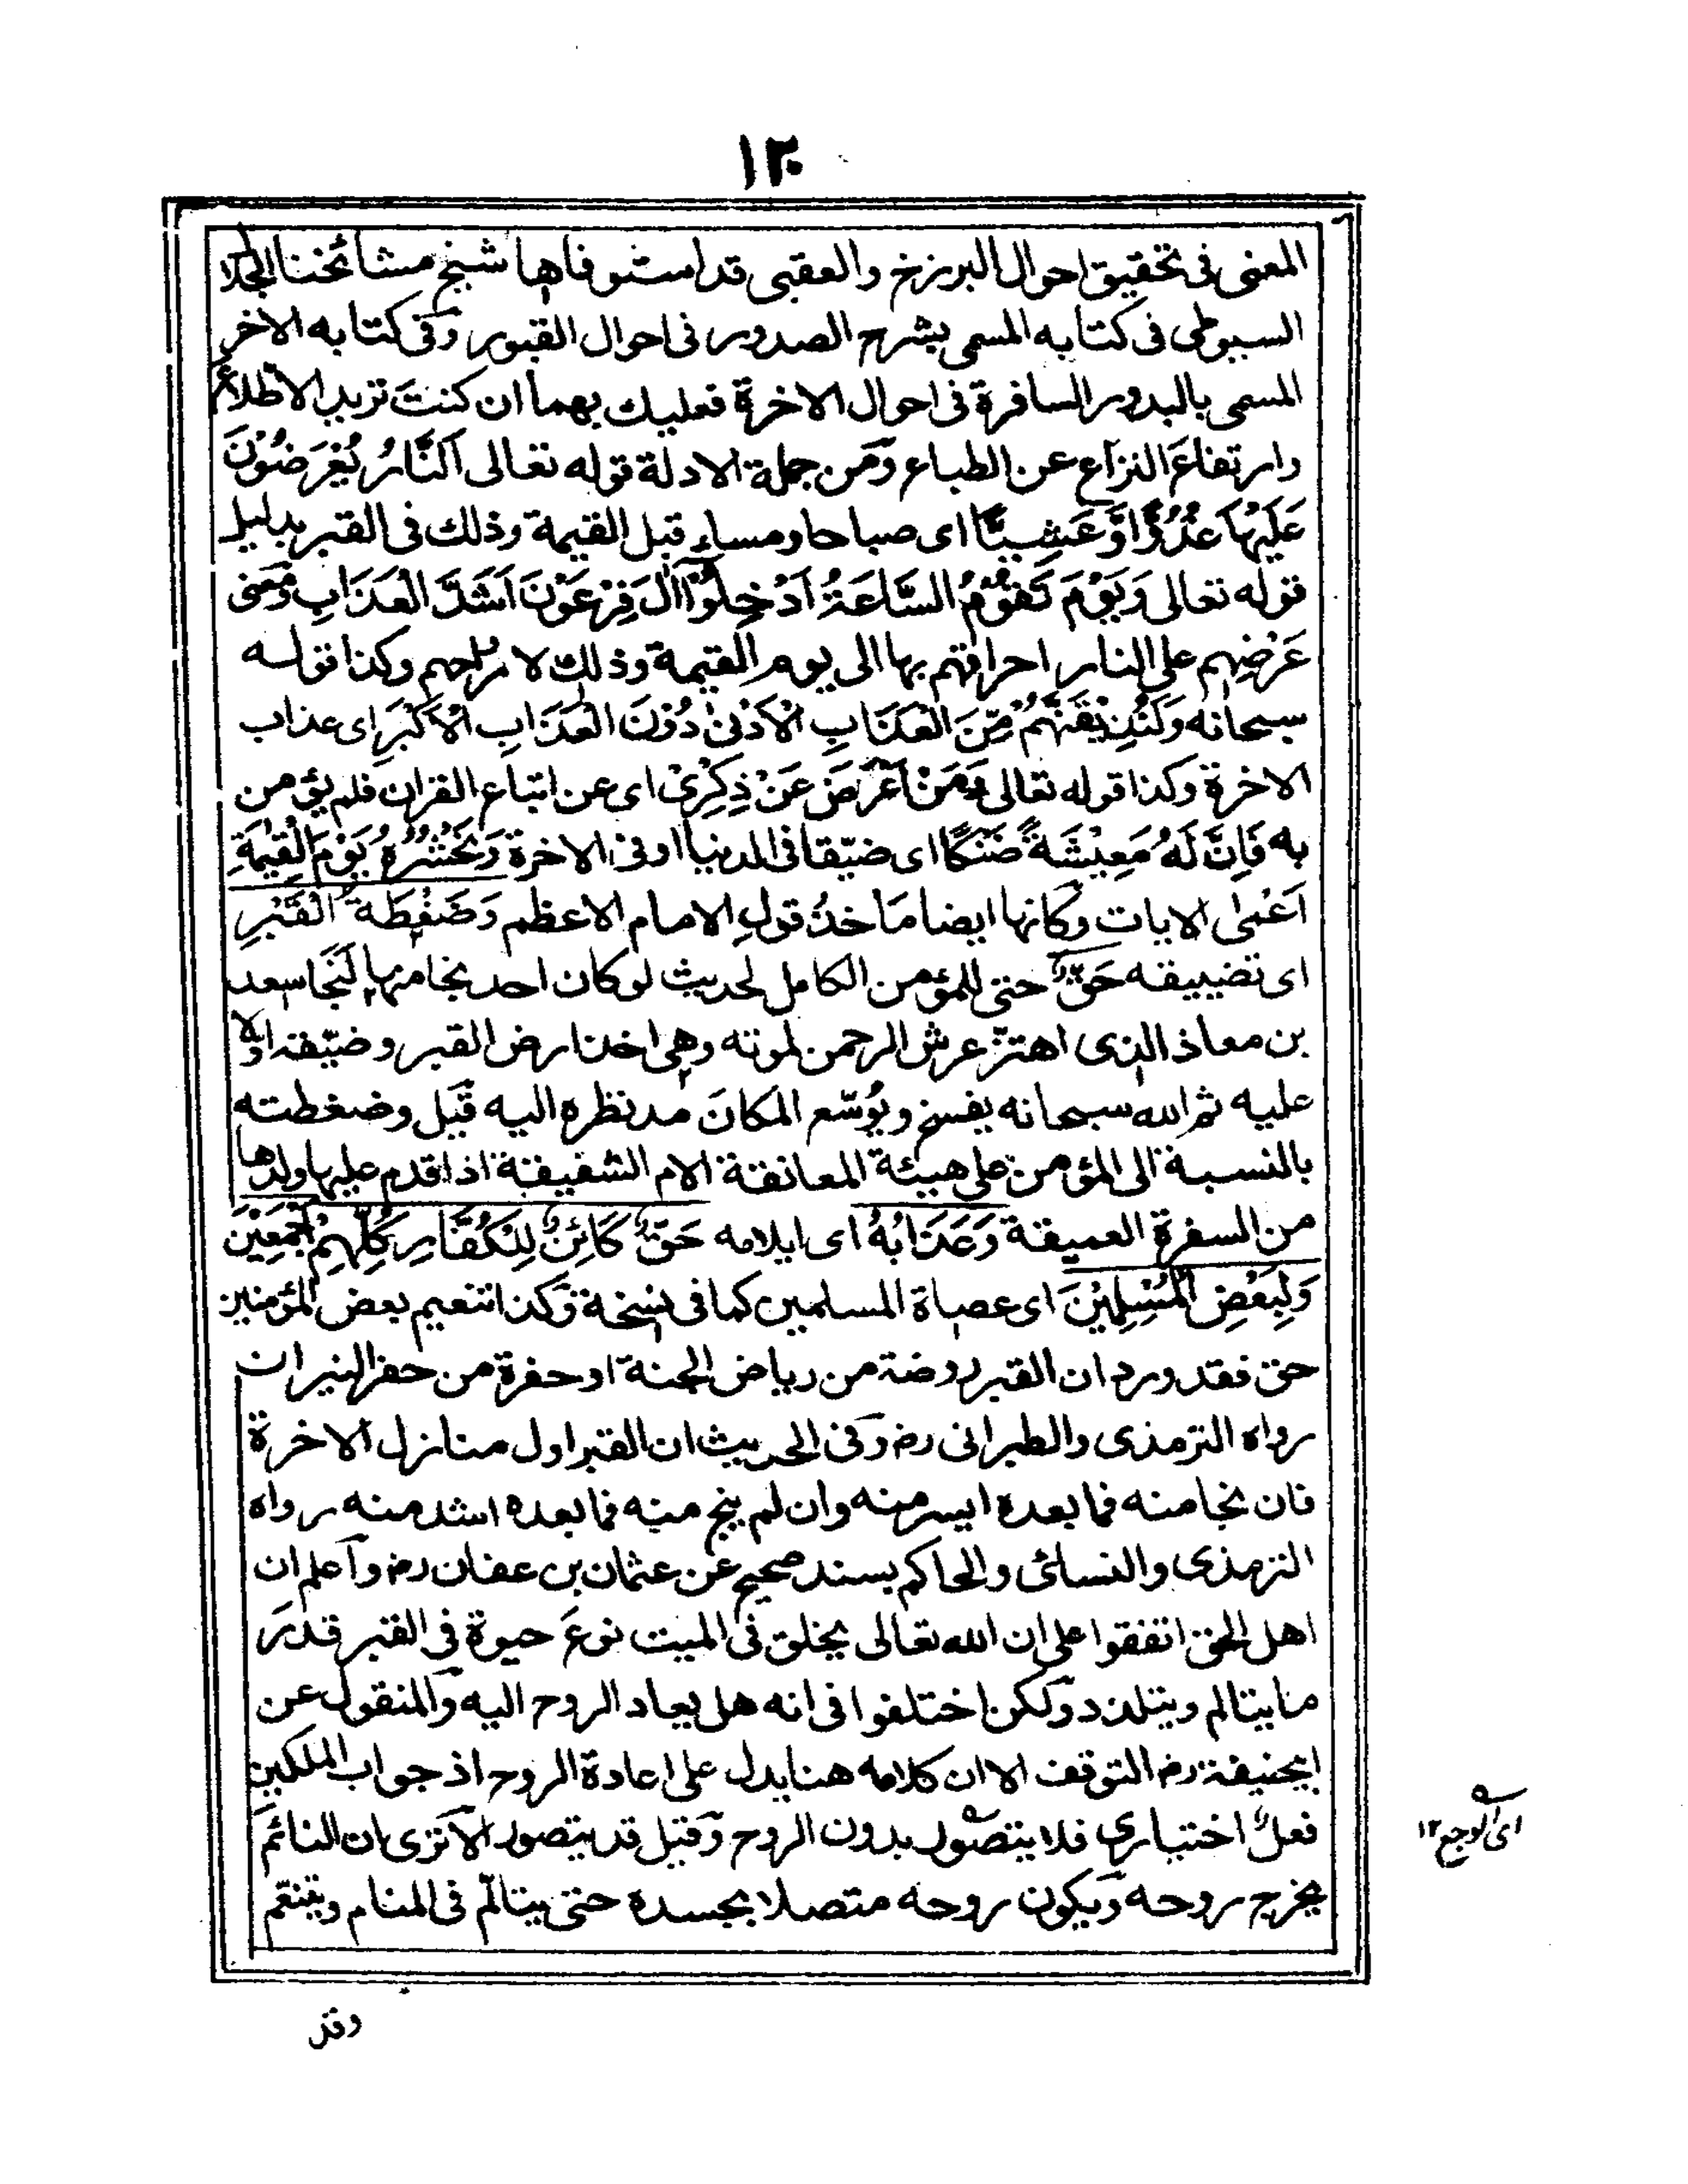 ١٢٠
المعنى فى تحقيق احوال البرزخ والعقبى قد استوفاها شيخ مشائخنا الجلال
السيوطى فى كتابه المسمى بشرح الصدور فى احوال القبور وفى كتابه الاخر
المسمى بالبدور السافرة فى احوال الاخرة فعليك بهما ان كنتَ تريد الاطلاع
وارتفاعَ النزاع عن الطباع ومن جملة الادلة قوله تعالى اَلنَّارُ يُعْرَضُوْنَ
عَلَيْهَا غُدُوًّا وَّعَشِيًّا اى صباحا ومساء قبل القيمة وذلك فى القبر بدليل
قوله تعالى وَيَوْمَ تَقُوْمُ السَّاعَةُ اَدْخِلُوْٓا اٰلَ فِرْعَوْنَ اَشَدَّ الْعَذَابِ ومعنى
عَرْضِهِم على النار احراقهم بها الى يوم القيمة وذلك لارواحهم وكذا قوله
سبحانه وَلَنُذِيْقَنَّهُمْ مِّنَ الْعَذَابِ الْاَدْنٰى دُوْنَ الْعَذَابِ الْاَكْبَرِ اى عذاب
الاخرة وكذا قوله تعالى وَمَنْ اَعْرَضَ عَنْ ذِكْرِىْ اى عن اتباع القران فلم يؤمن
به فَاِنَّ لَهُ مَعِيْشَةً ضَنْكًا اى ضيّقا فى الدنيا او فى الاخرة وَنَحْشُرُهُ يَوْمَ الْقِيٰمَةِ
اَعْمٰى الايات وكانها ايضا مَاخذُ قولِ الامام الاعظم وَضَغْطَةُ الْقَبْرِ
اى تضييقه حَقٌّ حتى للمؤمن الكامل لحديث لو كان احد نجا منها لَنَجَا سعد
بن معاذ الذى اهتزّ عرش الرحمن لموته وهى اخذ ارض القبر وضيّقه اولا
عليه ثم الله سبحانه يفسح ويُوسّع المكانَ مد نظره اليه قيل وضغطته
بالنسبة الى المؤمن على هيئة المعانقة الام الشفيقة اذا قدم عليها ولدها
من السفرة العميقة وَعَذَابُهُ اى ايلامه حَقٌّ كَائِنٌ لِلْكُفَّارِ كُلِّهِمْ اَجْمَعِيْنَ
وَلِبَعْضِ الْمُسْلِمِيْنَ اى عصاة المسلمين كما فى نسخة وكذا تنعيم بعض المؤمنين
حق فقد ورد ان القبر روضة من رياض الجنة او حفرة من حفر النيران
رواه الترمذى والطبرانى رض وفى الحديث ان القبر اول منازل الاخرة
فان نجا منه فما بعده ايسر منه وان لم ينج منه فما بعده اشد منه رواه
الترمذى والنسائى والحاكم بسند صحيح عن عثمان بن عفان رض واعلم ان
اهل الحق اتفقوا على ان الله تعالى يخلق فى الميت نوعَ حيوة فى القبر قدرَ
ما يتالم ويتلذذ ولكن اختلفوا فى انه هل يعاد الروح اليه والمنقول عن
ابيحنيفة رض التوقف الا ان كلامه هنا يدل على اعادة الروح اذ جواب الملكين
فعلٌ اختيارى فلا يتصور بدون الروح وقيل قد يتصور الا ترى ان النائم
يخرج روحه ويكون روحه متصلا بجسده حتى يتالّم فى المنام ويتنعّم
اى الوجع ١٢
وقد